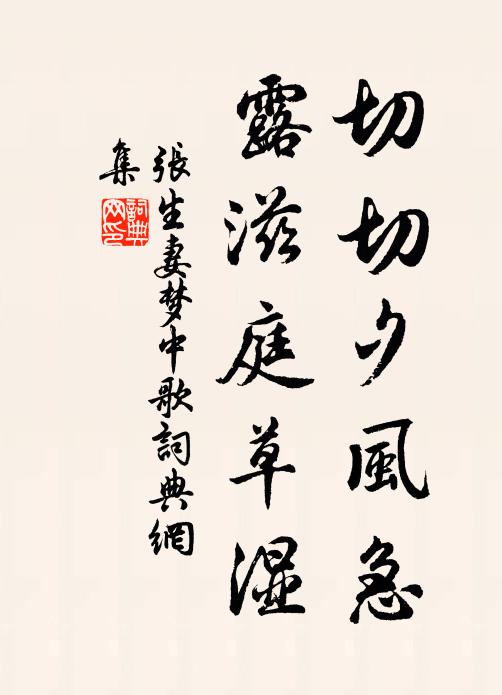 切切夕風急
露滋庭草湿
張生妻梦中歌詞典網
集
詞典
网印